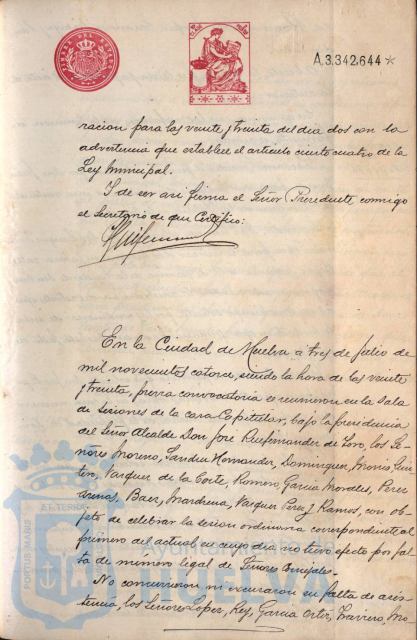 TIMBRE DEL ESTADO
A.3.342.644 *
racion para las veinte y treinta del dia dos con la
advertencia que establece el articulo ciento cuatro de la
Ley Municipal.
Y de ser asi firma el Señor Presidente conmigo
el Secretario de que Certifico:
En la Ciudad de Huelva á tres de Julio de
mil novecientos catorce, siendo la hora de las veinte
y treinta, previa convocatoria se reunieron en la Sala
de Sesiones de la Casa Capitular, bajo la presidencia
del Señor Alcalde Don José de los Se-
ñores Moreno, Hernandez, Dominguez, Quin-
tero, Vazquez de la Corte, Romero, Garcia Morales, Perez
Baez, Marchena, Vazquez Perez y Ramos, con ob-
jeto de celebrar la sesion ordinaria correspondiente al
primero del actual en cuyo dia no tuvo efecto por fal-
ta de número legal de Señores Concejales.
No concurrieron ni escusaron su falta de asis-
tencia, los Señores Lopez, Rey, Garcia Ortiz,
PORTUS MARIS
ET TERRAE
Ayuntamiento de
HUELVA